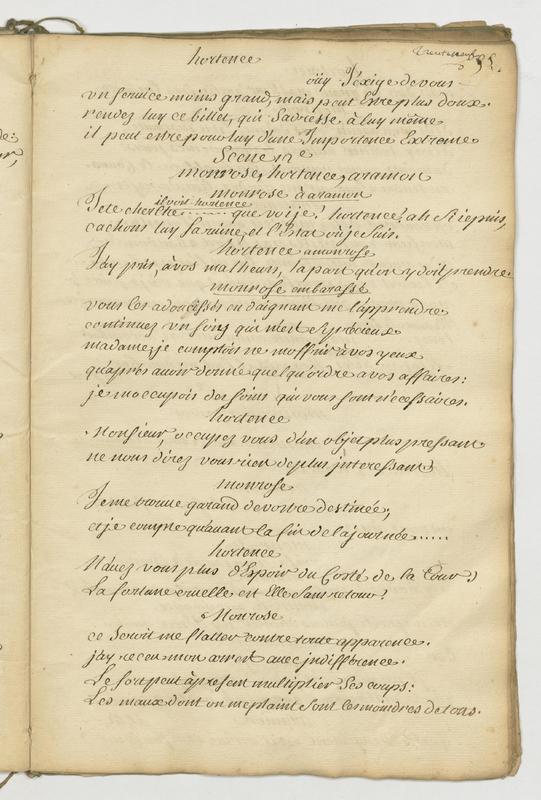 hortence
oüy J'exige de vous
vn service moins grand, mais peut Estre plus doux.
rendez luy ce billet, qui s'adresse à luy même
il peut entre pour luy d'une Importence Extreme
Scene 12e
monrose, hortence, aramon
monrose à aramon
il voit hortence
Je te cherche ....... que vois je! hortence! ah si je puis,
cachons luy sa ruine, et l'Estat où je suis.
hortence a monrose
J'ay pris, à vos malheurs, la part qu'on y doit prendre.
monrose embarassé
vous les adoucissés en daignant me l'apprendre.
continuez vn soins qui m'est si précieux
madame, je comptois ne m'offrir à vos yeux
qu'aprés auoir donné quelqu'ordre a vos affaires:
je m'occupois des soins qui vous sont nécessaires.
hortence
Monsieur, occupez vous d'un objet plus pressant
ne nous direz vous rien de plus jnteressant?
monrose
Je me trouue garand de vostre destinée,
et je compte qu'auant la fin de la journée......
hortence
N'auez vous plus d'Espoir du Costé de la Cour?
La fortune cruelle est Elle sans retour?
Monrose
ce seroit me flatter contre toute apparence.
j'ay receu mon arrest auec jndifférence.
Le sort peut à présent multiplier ses coups:
Les maux dont on me plaint sont les moindres de tous.